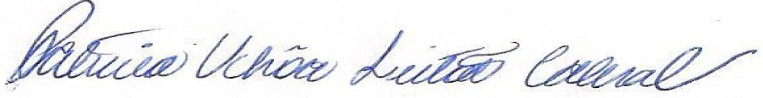 Patrícia Uchôa Leitão Cabral